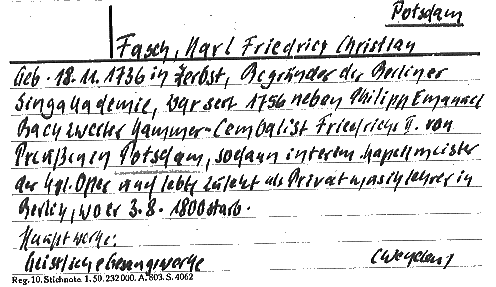 Potsdam
Fasch, Karl Friedrich Christian
Geb. 18.11.1736 in Zerbst, Begründer der Berliner
Singakademie, war seit 1756 neben Philipp Emanuel
Bach zweiter Kammer-Cembalist Friedrichs II. von
Preußen in Potsdam, sodann interem. Kapellmeister
der kgl. Oper und lebte zuletzt als Privatmusiklehrer in
Berlin, wo er 3.8.1800 starb.
Hauptwerke:
Geistliche Gesangwerke
Reg. 10. Stichnote. 1. 50. 232000. A. 803. S. 4062